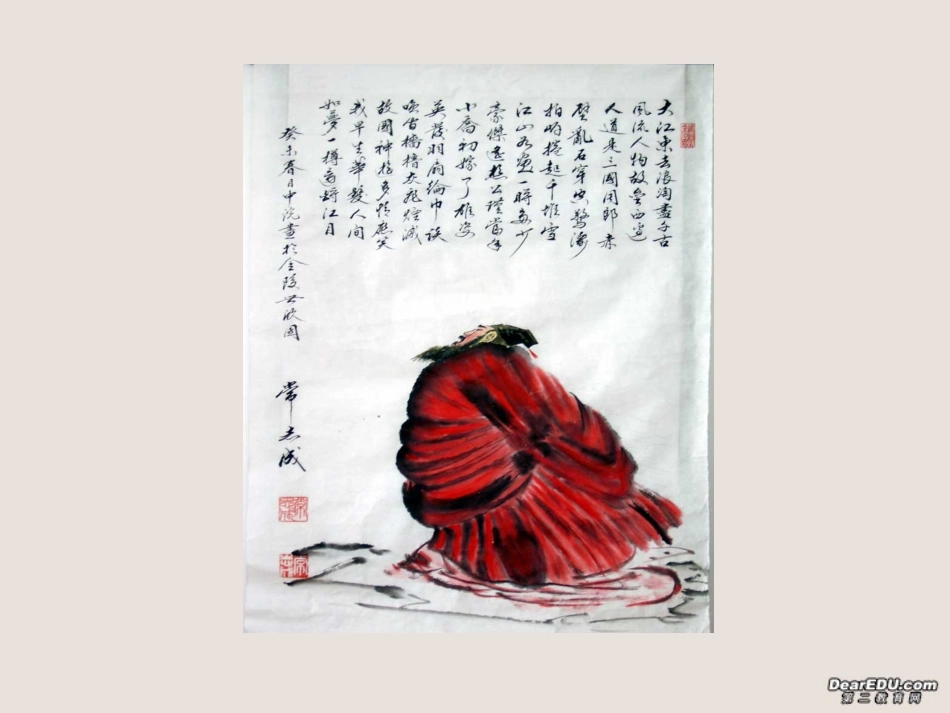 大江東去浪淘盡千古
風流人物故壘西邊
人道是三國周郎赤
壁亂石穿空驚濤
拍岸捲起千堆雪
江山如畫一時多少
豪傑遥想公瑾當年
小喬初嫁了雄姿
英發羽扇綸巾談
檣櫓灰飛煙滅
故國神遊多情應笑
我早生華髮人間
如夢一樽還酹江月
癸未春月中浣畫於金陵
常志成
DearEDU.com
第二教育网